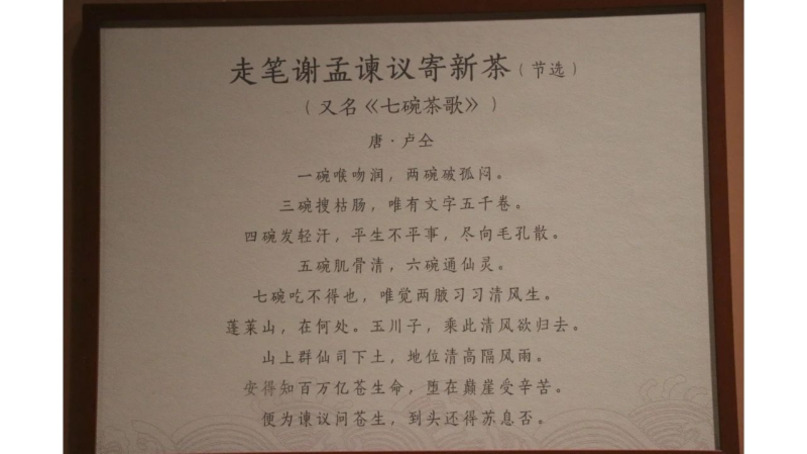 走笔谢孟谏议寄新茶（节选）
（又名《七碗茶歌》）
唐·卢仝
一碗喉吻润，两碗破孤闷。
三碗搜枯肠，唯有文字五千卷。
四碗发轻汗，平生不平事，尽向毛孔散。
五碗肌骨清，六碗通仙灵。
七碗吃不得也，唯觉两腋习习清风生。
蓬莱山，在何处。玉川子，乘此清风欲归去。
山上群仙司下土，地位清高隔风雨。
安得知百万亿苍生命，堕在巅崖受辛苦。
便为谏议问苍生，到头还得苏息否。